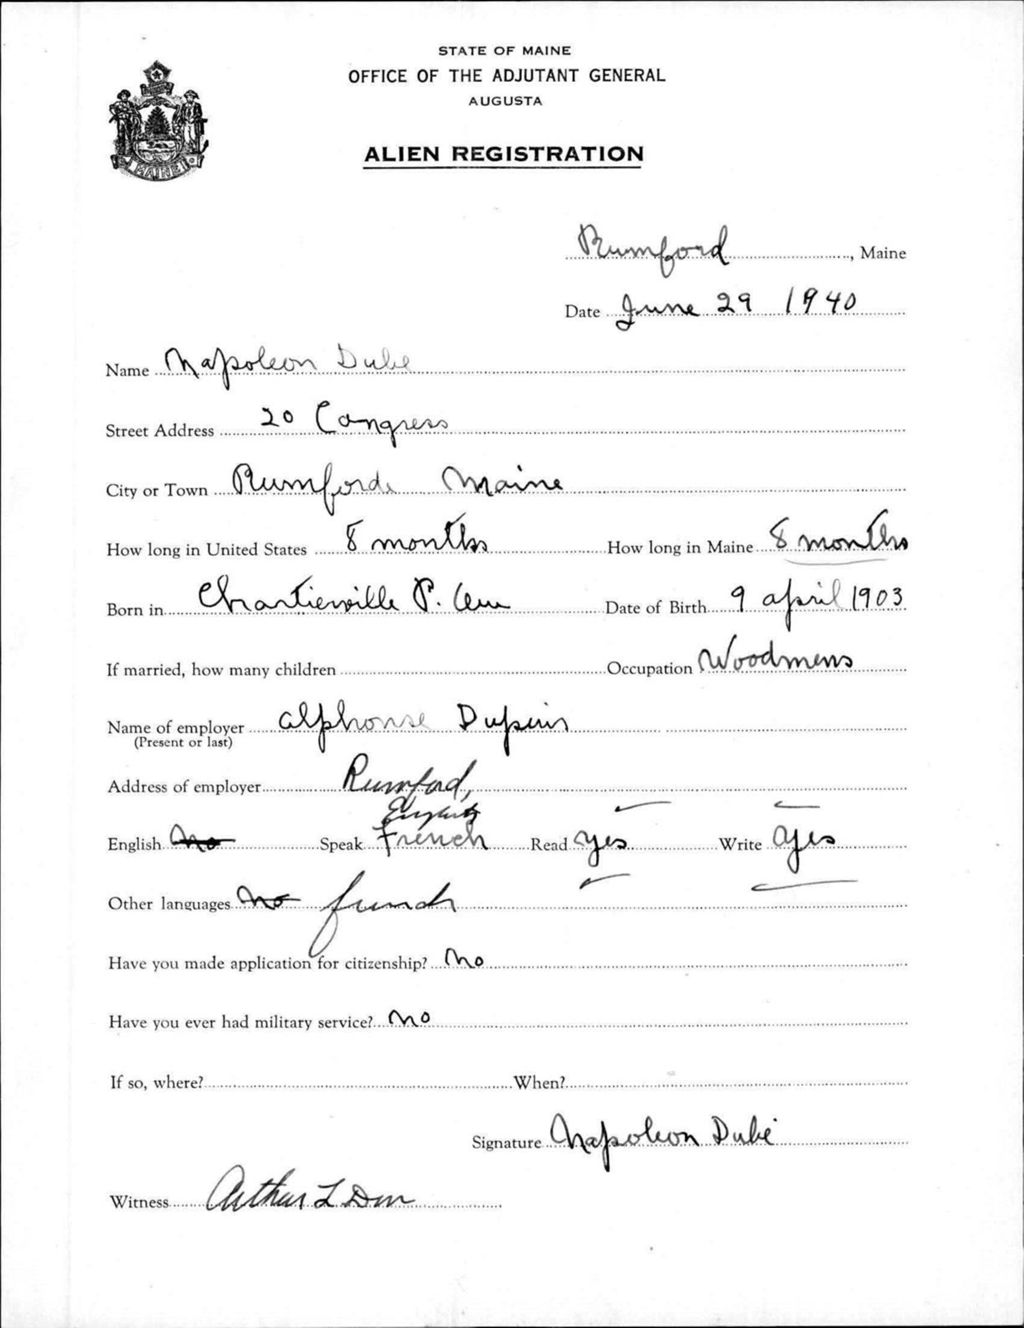 STATE OF MAINE
OFFICE OF THE ADJUTANT GENERAL
AUGUSTA
ALIEN REGISTRATION
MAINE
Rumford, Maine
Date June 29 1940
Name Napoleon Dube
Street Address 20 Congress
City or Town Rumford Maine
How long in United States 8 months How long in Maine 8 months
Born in Chartierville P. Date of Birth 9 april 1903
If married, how many children Occupation Woodmens
Name of employer alphonse
(Present or last)
Address of employer Rumford,
English
English no Speak French Read yes Write yes
Other languages no french
Have you made application for citizenship? no
Have you ever had military service? no
If so, where? When?
Signature Napoleon Dubé
Witness Arthur L